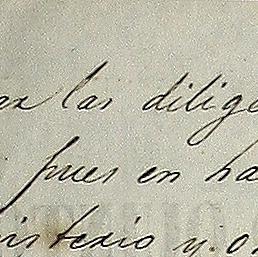 las dilige
pues en ha
isterio y o